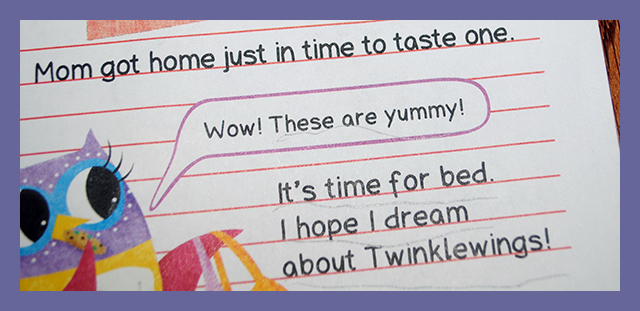 Mom got home just in time to taste one.
Wow! These are yummy!
It's time for bed.
I hope I dream
about Twinklewings!